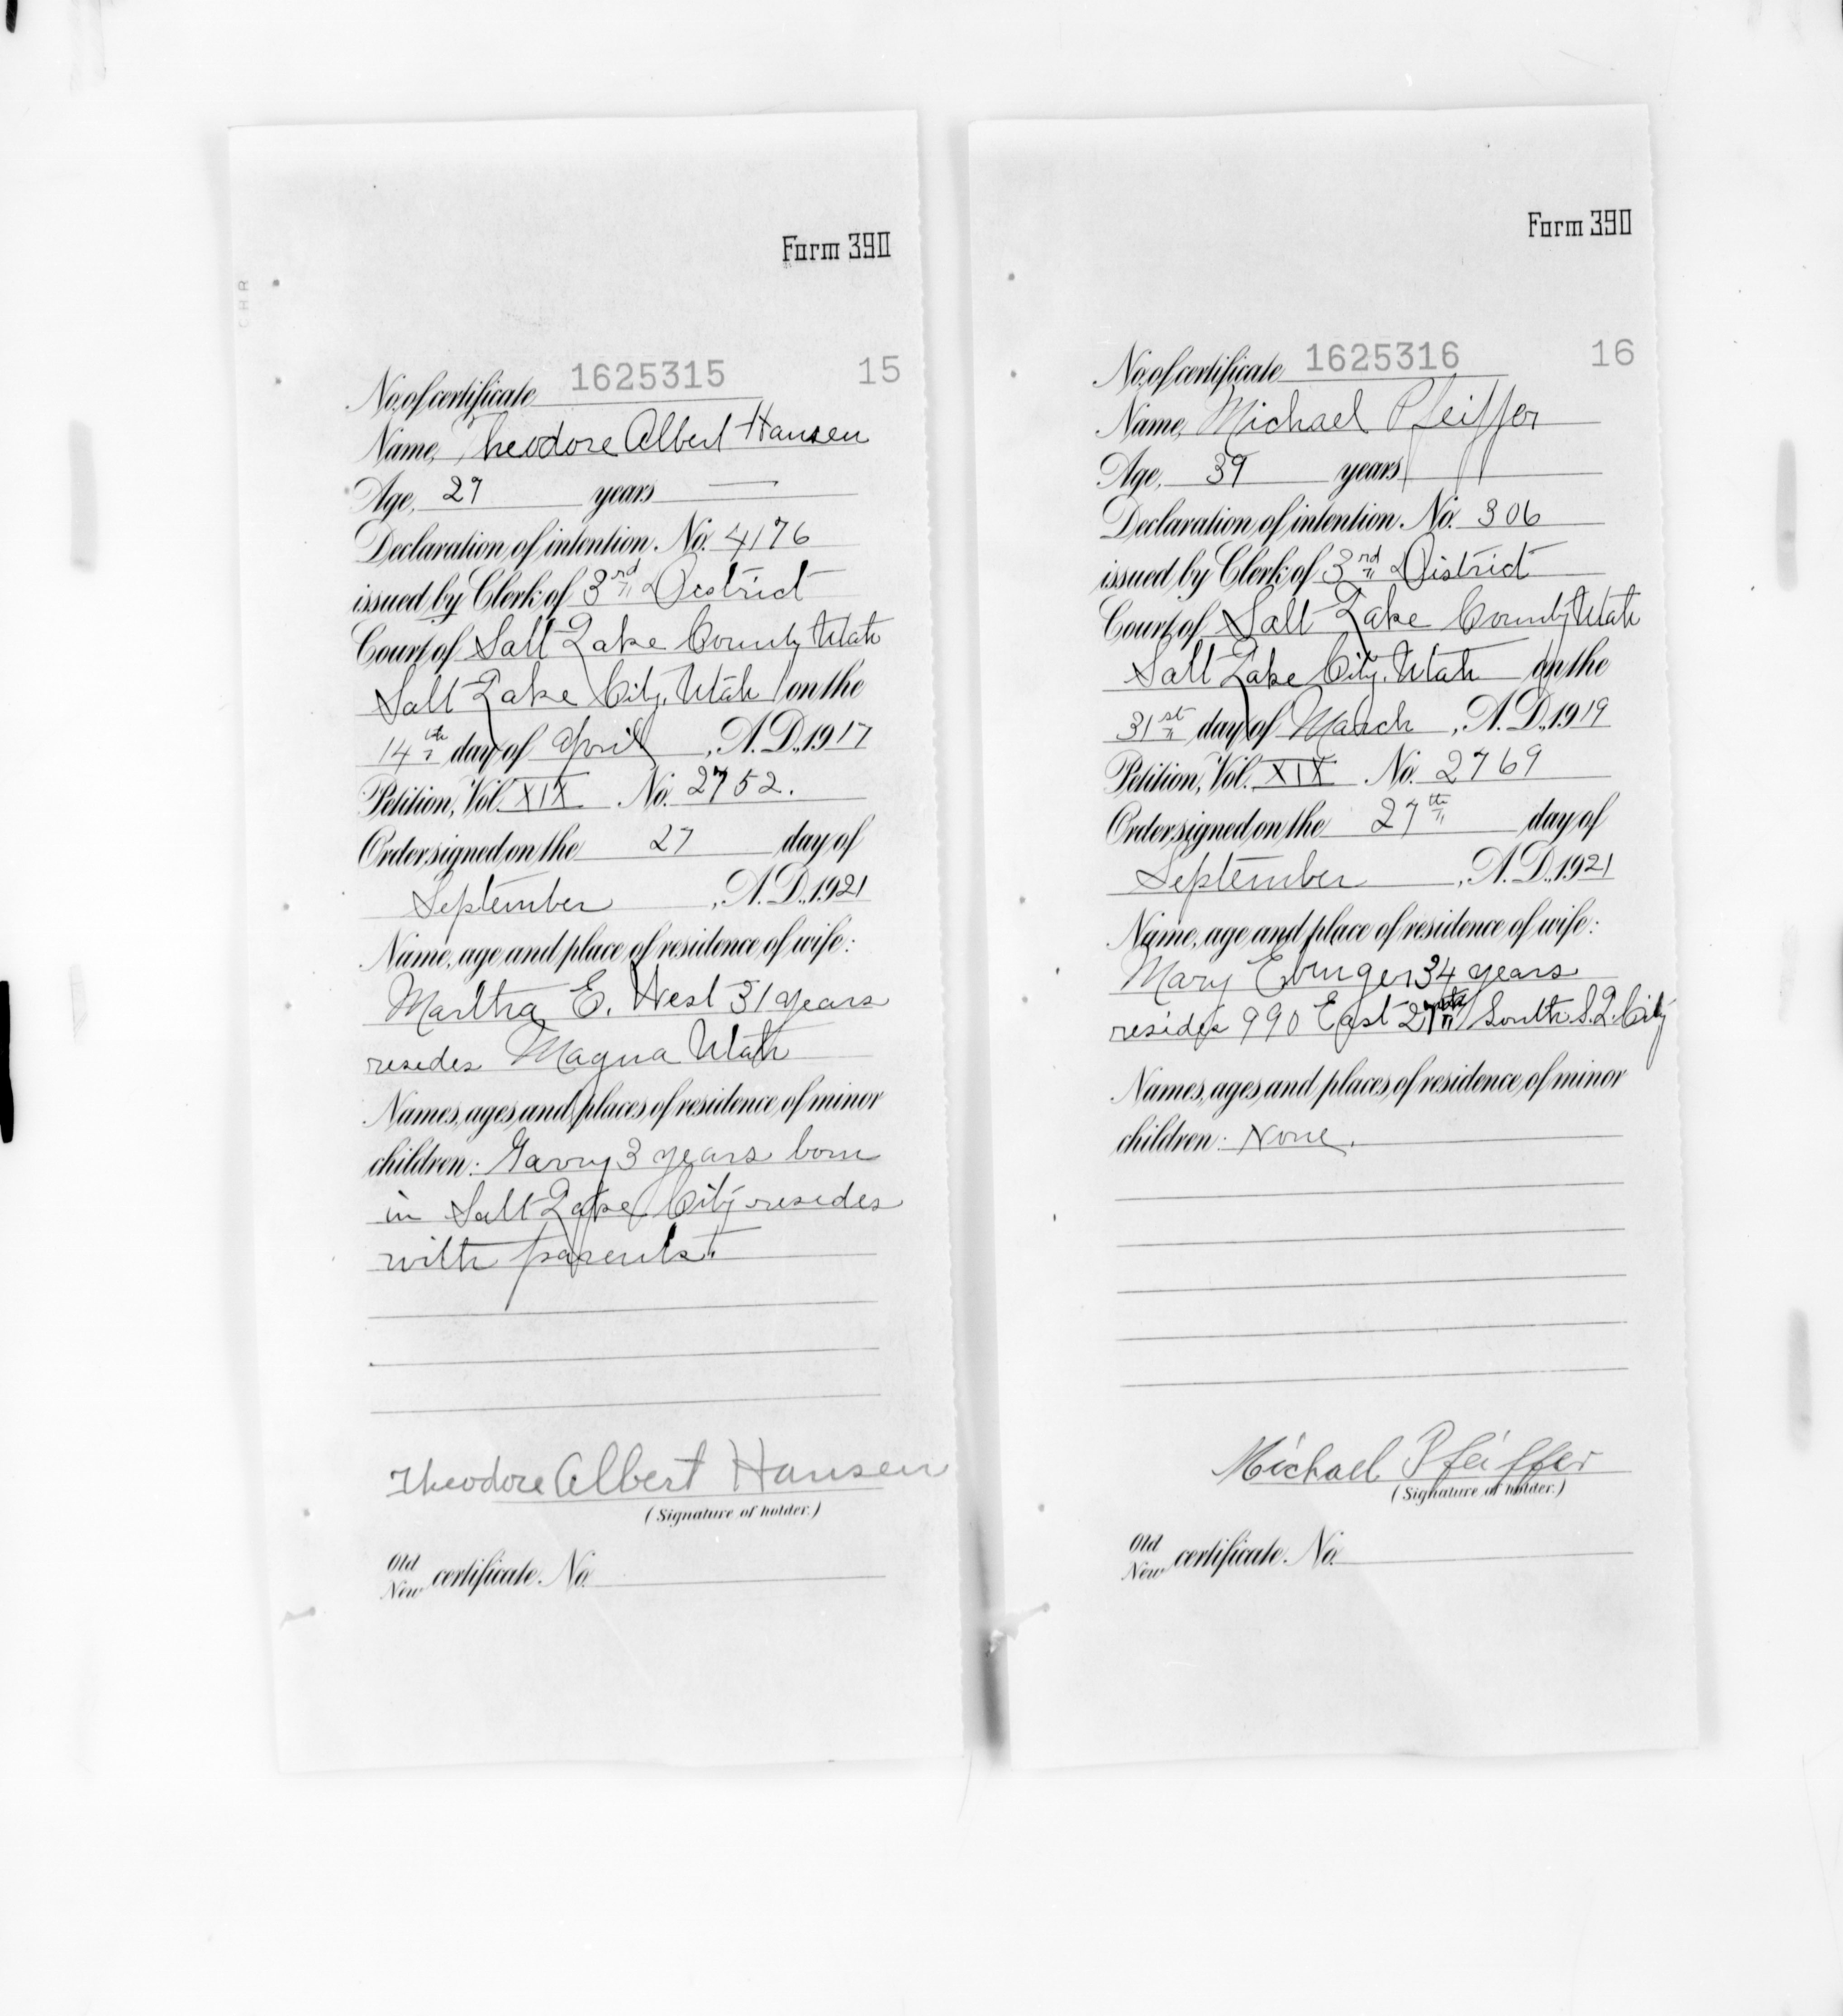 CHR
Form 390
No. of certificate 1625315 15
Name, Theodore Albert Hansen
Age, 27 years —
Declaration of intention No. 4176
issued by Clerk of 3rd District
Court of Salt Lake County Utah
Salt Lake City, Utah on the
14th day of April, A.D., 1917
Petition, Vol. XIX No. 2752.
Order signed on the 27 day of
September, A.D., 1921
Name, age and place of residence of wife:
Martha E. West 31 years
resides Magna Utah
Names, ages, and places of residence of minor
children: Harry 3 years born
in Salt Lake City resides
with parents.
Theodore Albert Hansen
(Signature of holder.)
Old
New certificate No.
Form 390
No. of certificate 1625316 16
Name, Michael Pfeiffer
Age, 39 years
Declaration of intention No. 306
issued by Clerk of 3rd District
Court of Salt Lake County Utah
Salt Lake City, Utah on the
31st day of March, A.D., 1919
Petition, Vol. XIX No. 2769
Order signed on the 27th day of
September, A.D., 1921
Name, age and place of residence of wife:
Mary 34 years
resides 990 East South S. L. City
Names, ages, and places, of residence, of minor
children: None.
Michael Pfeiffer
(Signature of holder.)
Old
New certificate No.